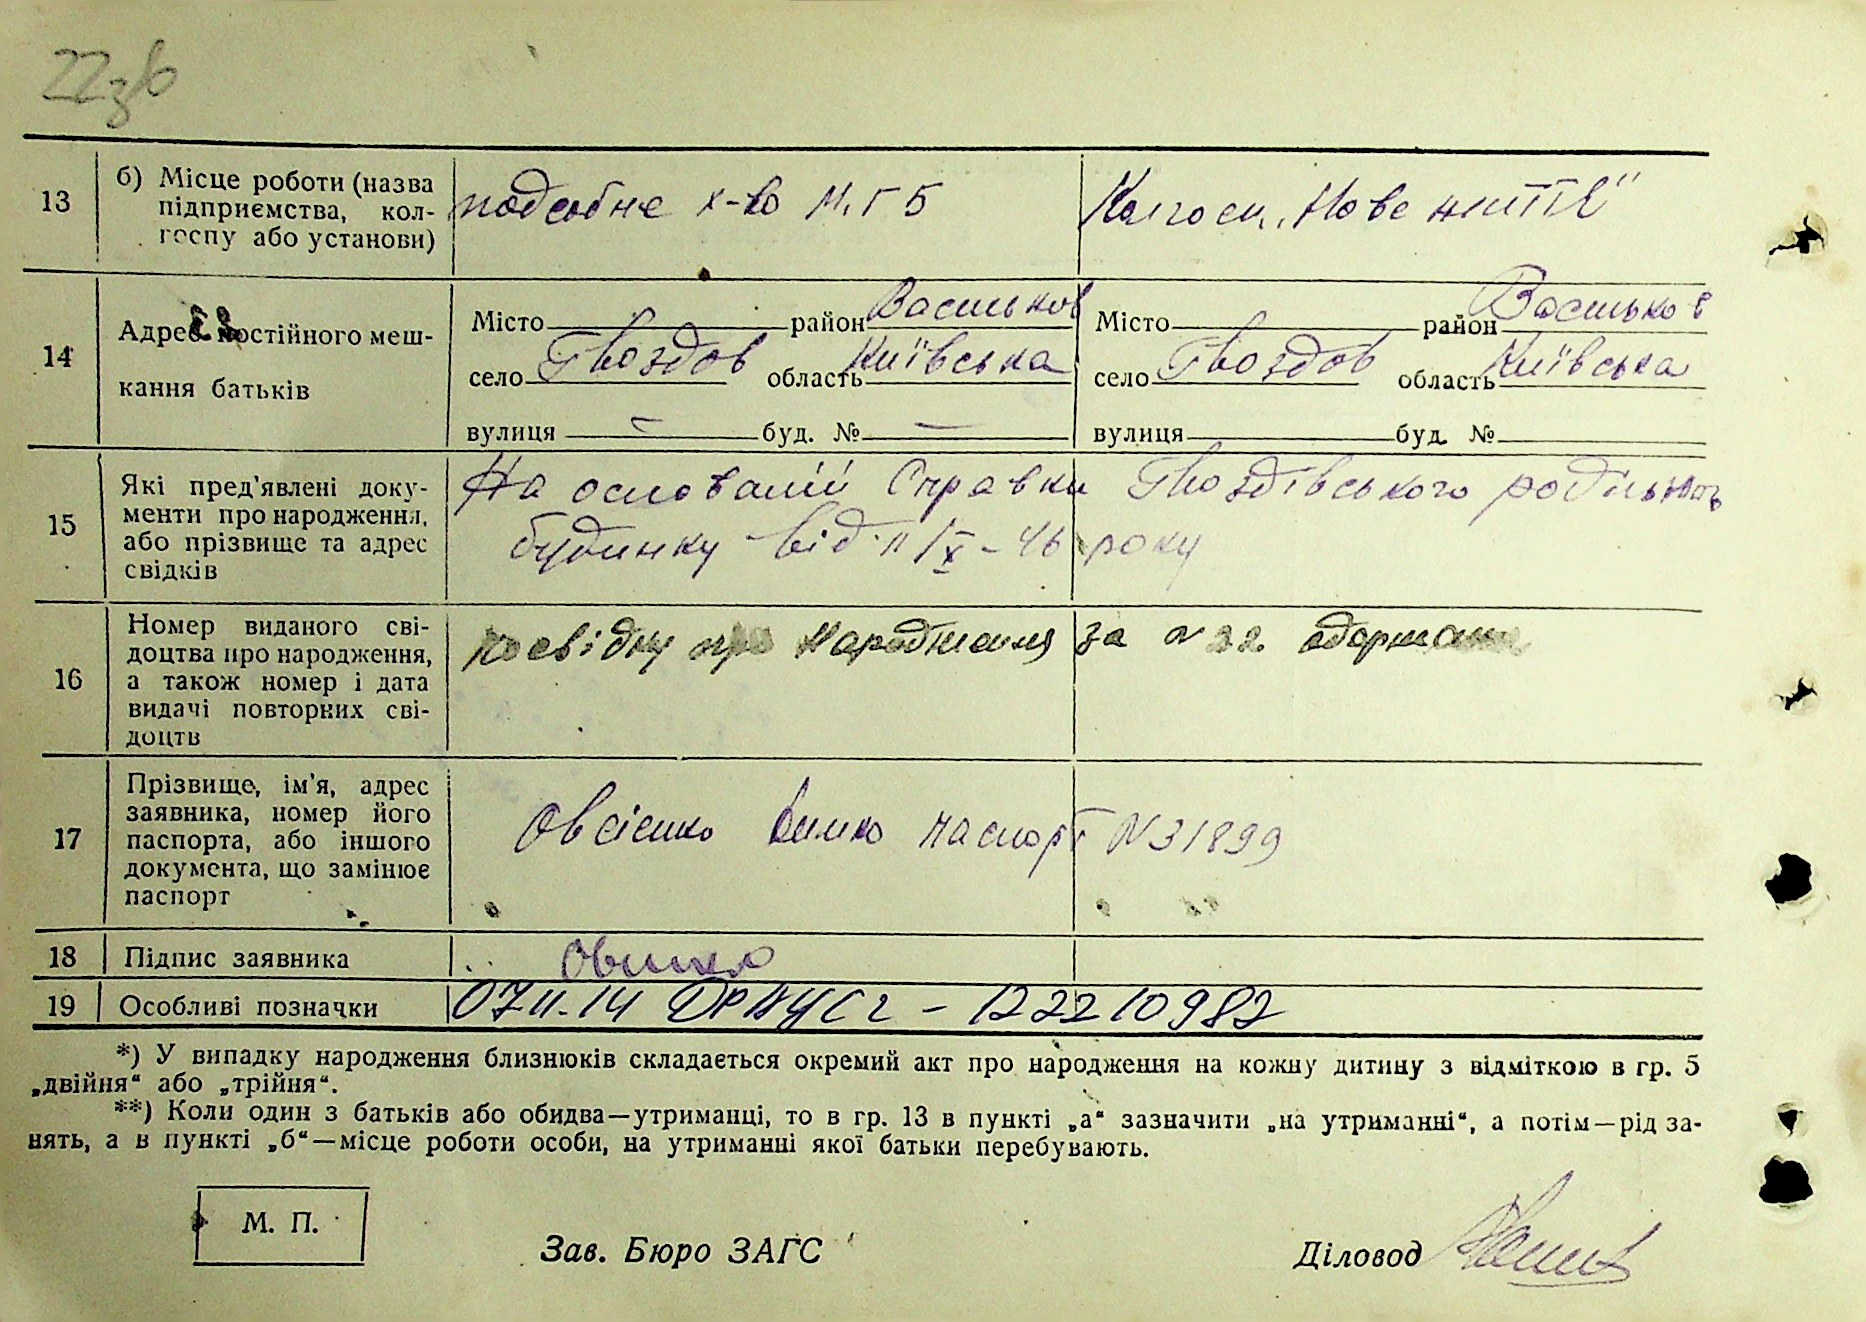 22зв
13
б) Місце роботи (назва
підприємства, кол-
госпу або установи)
подсобне х-во М.Г Б
Колгосп „Нове життє"
14
Адрес постійного меш-
кання батьків
Місто район Васильков
село Гвоздов область Київська
вулиця — буд. № —
Місто район Васильков
село Гвоздов область Київська
вулиця буд. №
15
Які пред'явлені доку-
менти про народження,
або прізвище та адрес
свідків
На основаній Справки Гвоздівського
будинку від 11/X - 46 року
16
Номер виданого сві-
доцтва про народження,
а також номер і дата
видачі повторних сві-
доцтв
посвідку про народження за № 22
17
Прізвище, ім'я, адрес
заявника, номер його
паспорта, або іншого
документа, що замінює
паспорт
Овсієнко паспорт N 31899
18
Підпис заявника
19
Особливі позначки
- 122210982
*) У випадку народження близнюків складається окремий акт про народження на кожну дитину з відміткою в гр. 5
„двійня“ або „трійня“.
**) Коли один з батьків або обидва—утриманці, то в гр. 13 в пункті „а“ зазначити „на утриманні“, а потім—рід за-
нять, а в пункті „б“—місце роботи особи, на утриманні якої батьки перебувають.
М. П.
Зав. Бюро ЗАГС
Діловод